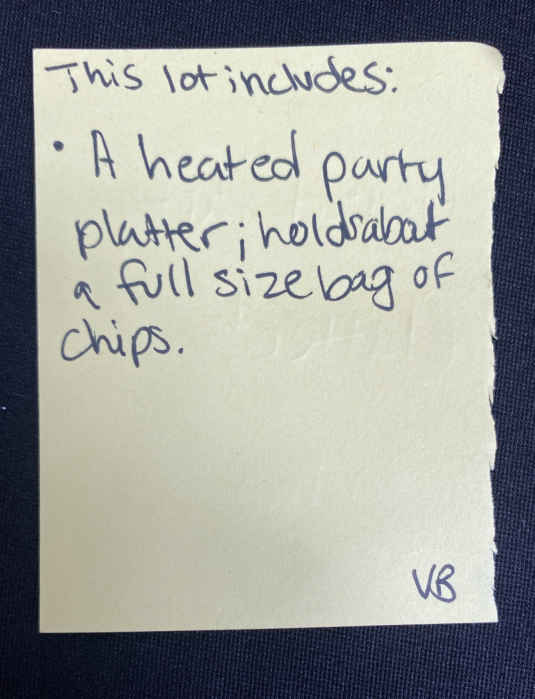 This lot includes:
• A heated party
platter; holds about
a full size bag of
chips.
VB